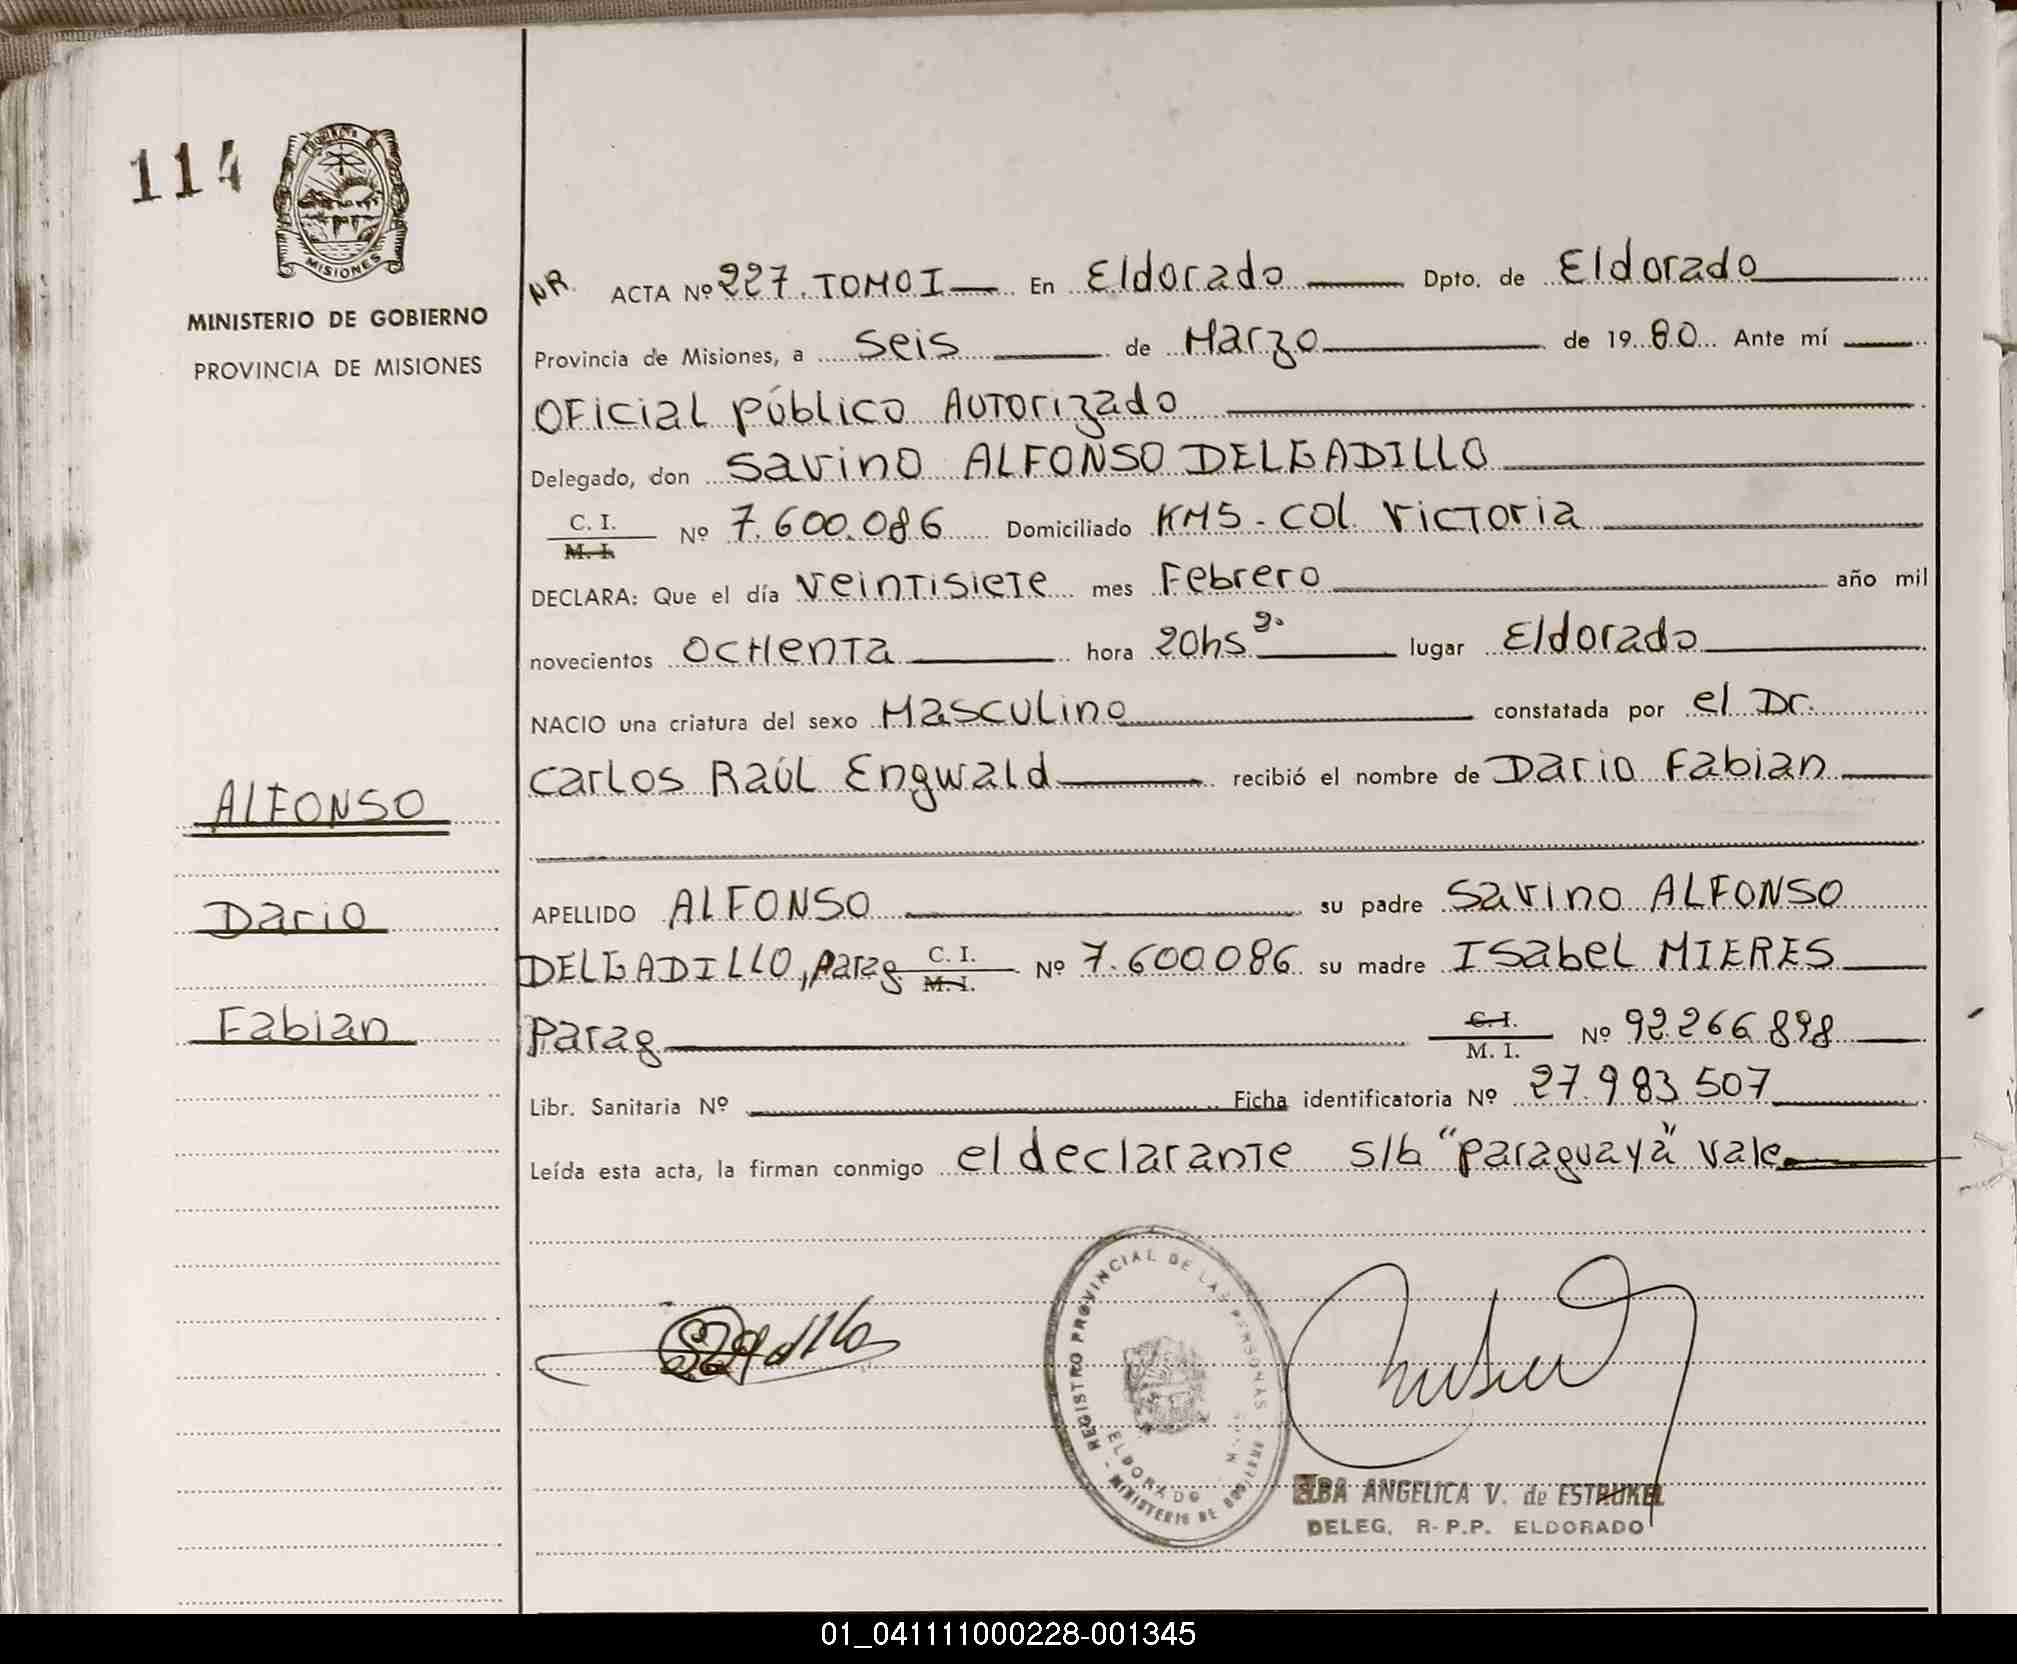 114
PROVINCIA DE
MISIONES
MINISTERIO DE GOBIERNO
PROVINCIA DE MISIONES
ALFONSO
Dario
Fabian
NR. ACTA Nº 227. TOMO I En Eldorado Dpto. de Eldorado
Provincia de Misiones, a seis de Marzo de 1980 Ante mí
Oficial público Autorizado
Delegado, don Savino ALFONSO DELGADILLO
C. I.
M. I. Nº 7.600.086 Domiciliado KM5 - Col. Victoria
DECLARA: Que el día Veintisiete mes Febrero año mil
novecientos Ochenta hora 20hs lugar Eldorado
NACIO una criatura del sexo Masculino constatada por el Dr.
Carlos Raúl Engwald recibió el nombre de Dario Fabian
APELLIDO ALFONSO su padre Savino ALFONSO
DELGADILLO, parag C. I. M. I. Nº 7.600.086 su madre Isabel MIERES
Parag C. I. M. I. Nº 92.266.898
Libr. Sanitaria Nº Ficha identificatoria Nº 27.983.507
Leída esta acta, la firman conmigo el declarante s/b "paraguaya" vale
REGISTRO PROVINCIAL DE LAS PERSONAS
ELDORADO
MINISTERIO DE GOBIERNO
ELBA ANGELICA V. de ESTRUKEL
DELEG. R-P.P. ELDORADO
01_041111000228-001345